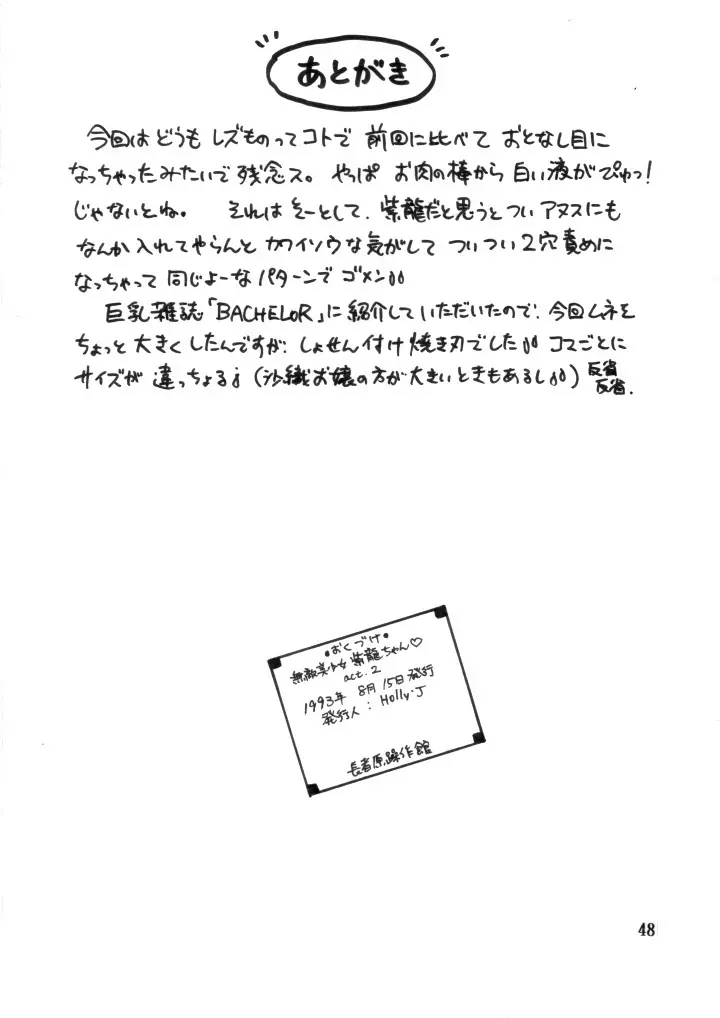 あとがき
今回はどうも レズものってコトで 前回に比べて おとなし目に
なっちゃったみたいで 残念ス。 やっぱ お肉の棒から 白い液がぴゅっ！
じゃないとね。 それはそーとして、紫龍だと思うとつい アヌスにも
なんか 入れてやらんと カワイソウな気がして ついつい 2穴責めに
なっちゃって 同じよーな パターンで ゴメン
巨乳雑誌「BACHELOR」に紹介していただいたので、今回ムネを
ちょっと 大きくしたんですが、しょせん付け焼き刃でした コマごとに
サイズが 違っちょる (沙織お嬢の方が大きいときもあるし) 反省
反省.
•おくづけ•
無敵美少女 紫龍ちゃん♡
act. 2
1993年 8月 15日発行
発行人 : Holly・J
長者原躁作館
48